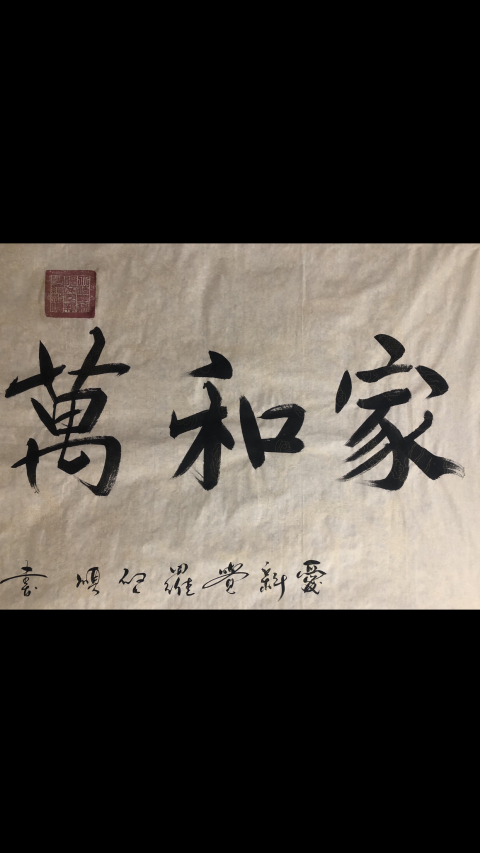 家和萬
愛新覺羅 順書